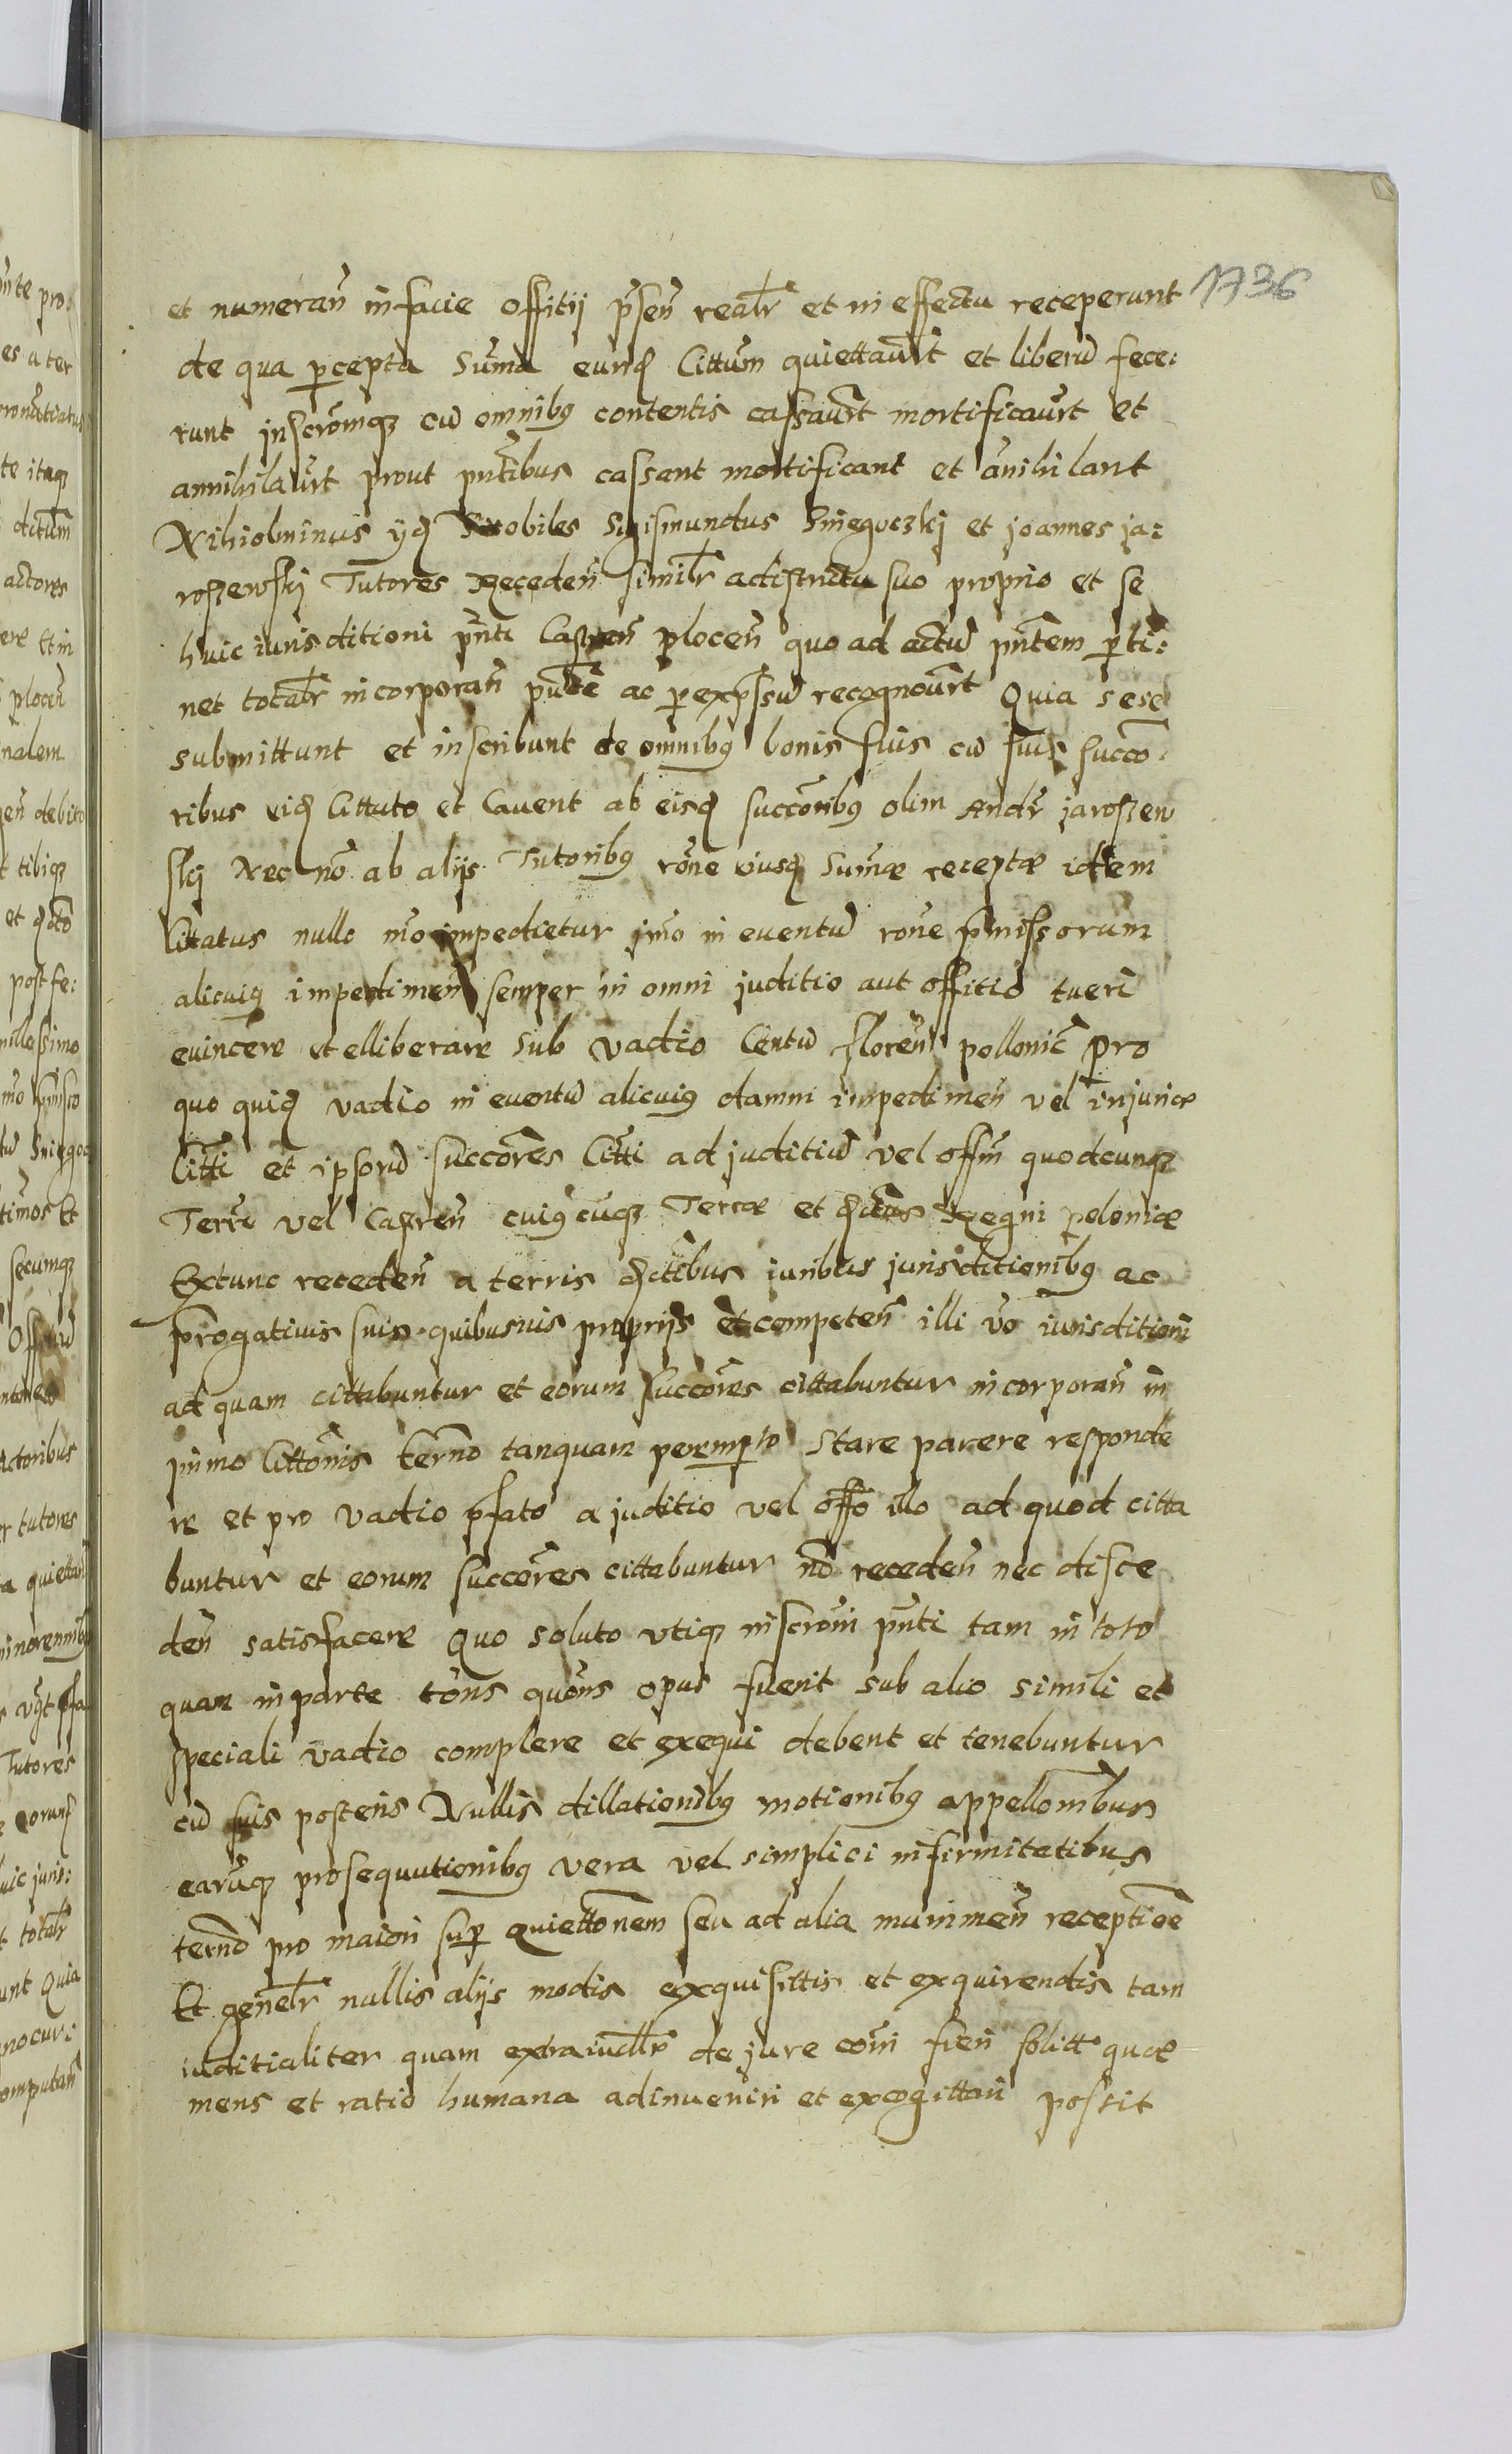 1736
et numeran̄ in facie offitij p̄sen̄ realr̄ et in effectu receperunt
de qua percepta Sum̄a eund̄ Cittum̄ quiettaur̄t et liberū fece:
runt inscrōmqȝ cū omnibȝ contentis cassaur̄t mortificaur̄t et
annihilaur̄t prout pn̄tibus cassant mortificant et an̄ihilant
Nihiolminus ijd̄ Nobiles Sigismundus Sniegoczkj et joannes ja:
roszewskj Tutores Receden̄ similr̄ a districtu suo proprio et se
huic iurisditioni pn̄ti Castren̄ plocen̄ quo ad actū pn̄tem perti:
net totalr̄ incorporan̄ publē ac per exp̄ssū recognour̄t Quia sese
submittunt et inscribunt de omnibȝ bonis suis cū suis succō:
ribus eid̄ Cittato et Cavent ab eisd̄ succōribȝ olim Andr̄ jaroszew
skj Nec nō ab alijs Tutoribȝ rōne eiusd̄ Sum̄æ receptæ idem
Citatus nullo mō impedietur jmō in euentū rōne p̄missorum
alicuiȝ impedimen̄ semper in omni juditio aut offitio tueri
euincere et elliberare sub vadio Centū floren̄ pollonic̄ pro
quo quid̄ vadio in euentū alicuiȝ damni impedimen̄ vel injuriæ
Citt̄i et ipsorū succōres Citt̄i ad juditiū vel offm̄ quodcunqȝ
Terr̄e vel Castren̄ cuiȝcūqȝ Terræ et districtus Regni poloniæ
Extunc receden̄ a terris districtibus juribus jurisditionibȝ ac
p̄rogatiuis suis quibusuis proprijs et competen̄ illi vō iurisditioni
ad quam cittabuntur et eorum succōres cittabuntur incorporan̄ in
primo Cittōnis termō tanquam peremp̄to stare parere responde
re et pro vadio p̄fato a juditio vel offō illo ad quod citta
buntur et eorum succōres cittabuntur nō receden̄ nec disce
den̄ satisfacere Quo soluto vtiqȝ inscrōni pn̄ti tam in toto
quam in parte tōns quōns opus fuerit sub alio simili et
speciali vadio complere et exequi debent et tenebuntur
cū suis posteris Nullis dillationibȝ motionibȝ appellōnibus
earūqȝ prosequutionibȝ vera vel simplici infirmitatibus
termō pro maiori super quiettōnem seu ad alia munimen̄ receptiōe
Et genelr̄ nullis alijs modis exquisittis et exquirendis tam
iuditialiter quam extraiudlr̄ de jure cōni fieri solitt quæ
mens et ratio humana adinueniri et excogittari possit